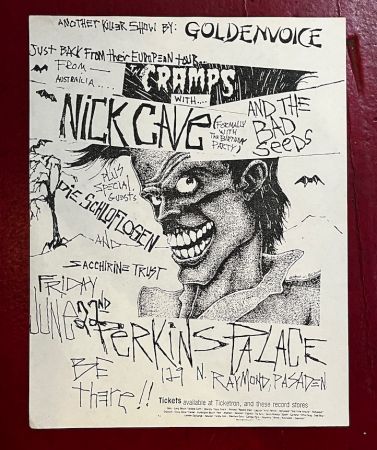 ANOTHER KILLER SHOW BY: GOLDENVOICE
JUST BACK FROM their EUROPEAN tour
FROM
AUSTRAILIA....
CRAMPS
WITH....
NICK CAVE
(FORMALLY WITH THE BIRTHDAY PARTY)
AND THE BAD SEEDS
PLUS
SPECIAL
GUESTS
DIE SCHLAFLOSEN
AND
SACCHIRINE TRUST
FRIDAY
JUNE 22ND
PERKINS PALACE
129 N. RAYMOND, PASADEN
BE
there!!
Tickets available at Ticketron, and these record stores